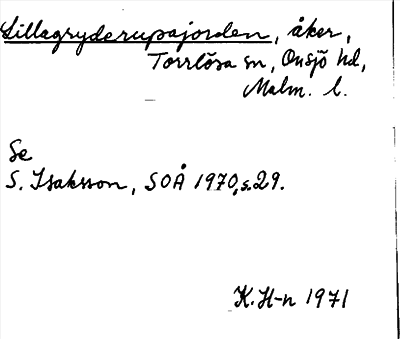 Lillagryderupajorden, åker,
Torrlösa sn, Onsjö hd,
Malm. l.
Se
S. Isaksson, SOÅ 1970, s. 29.
K. H-n 1971